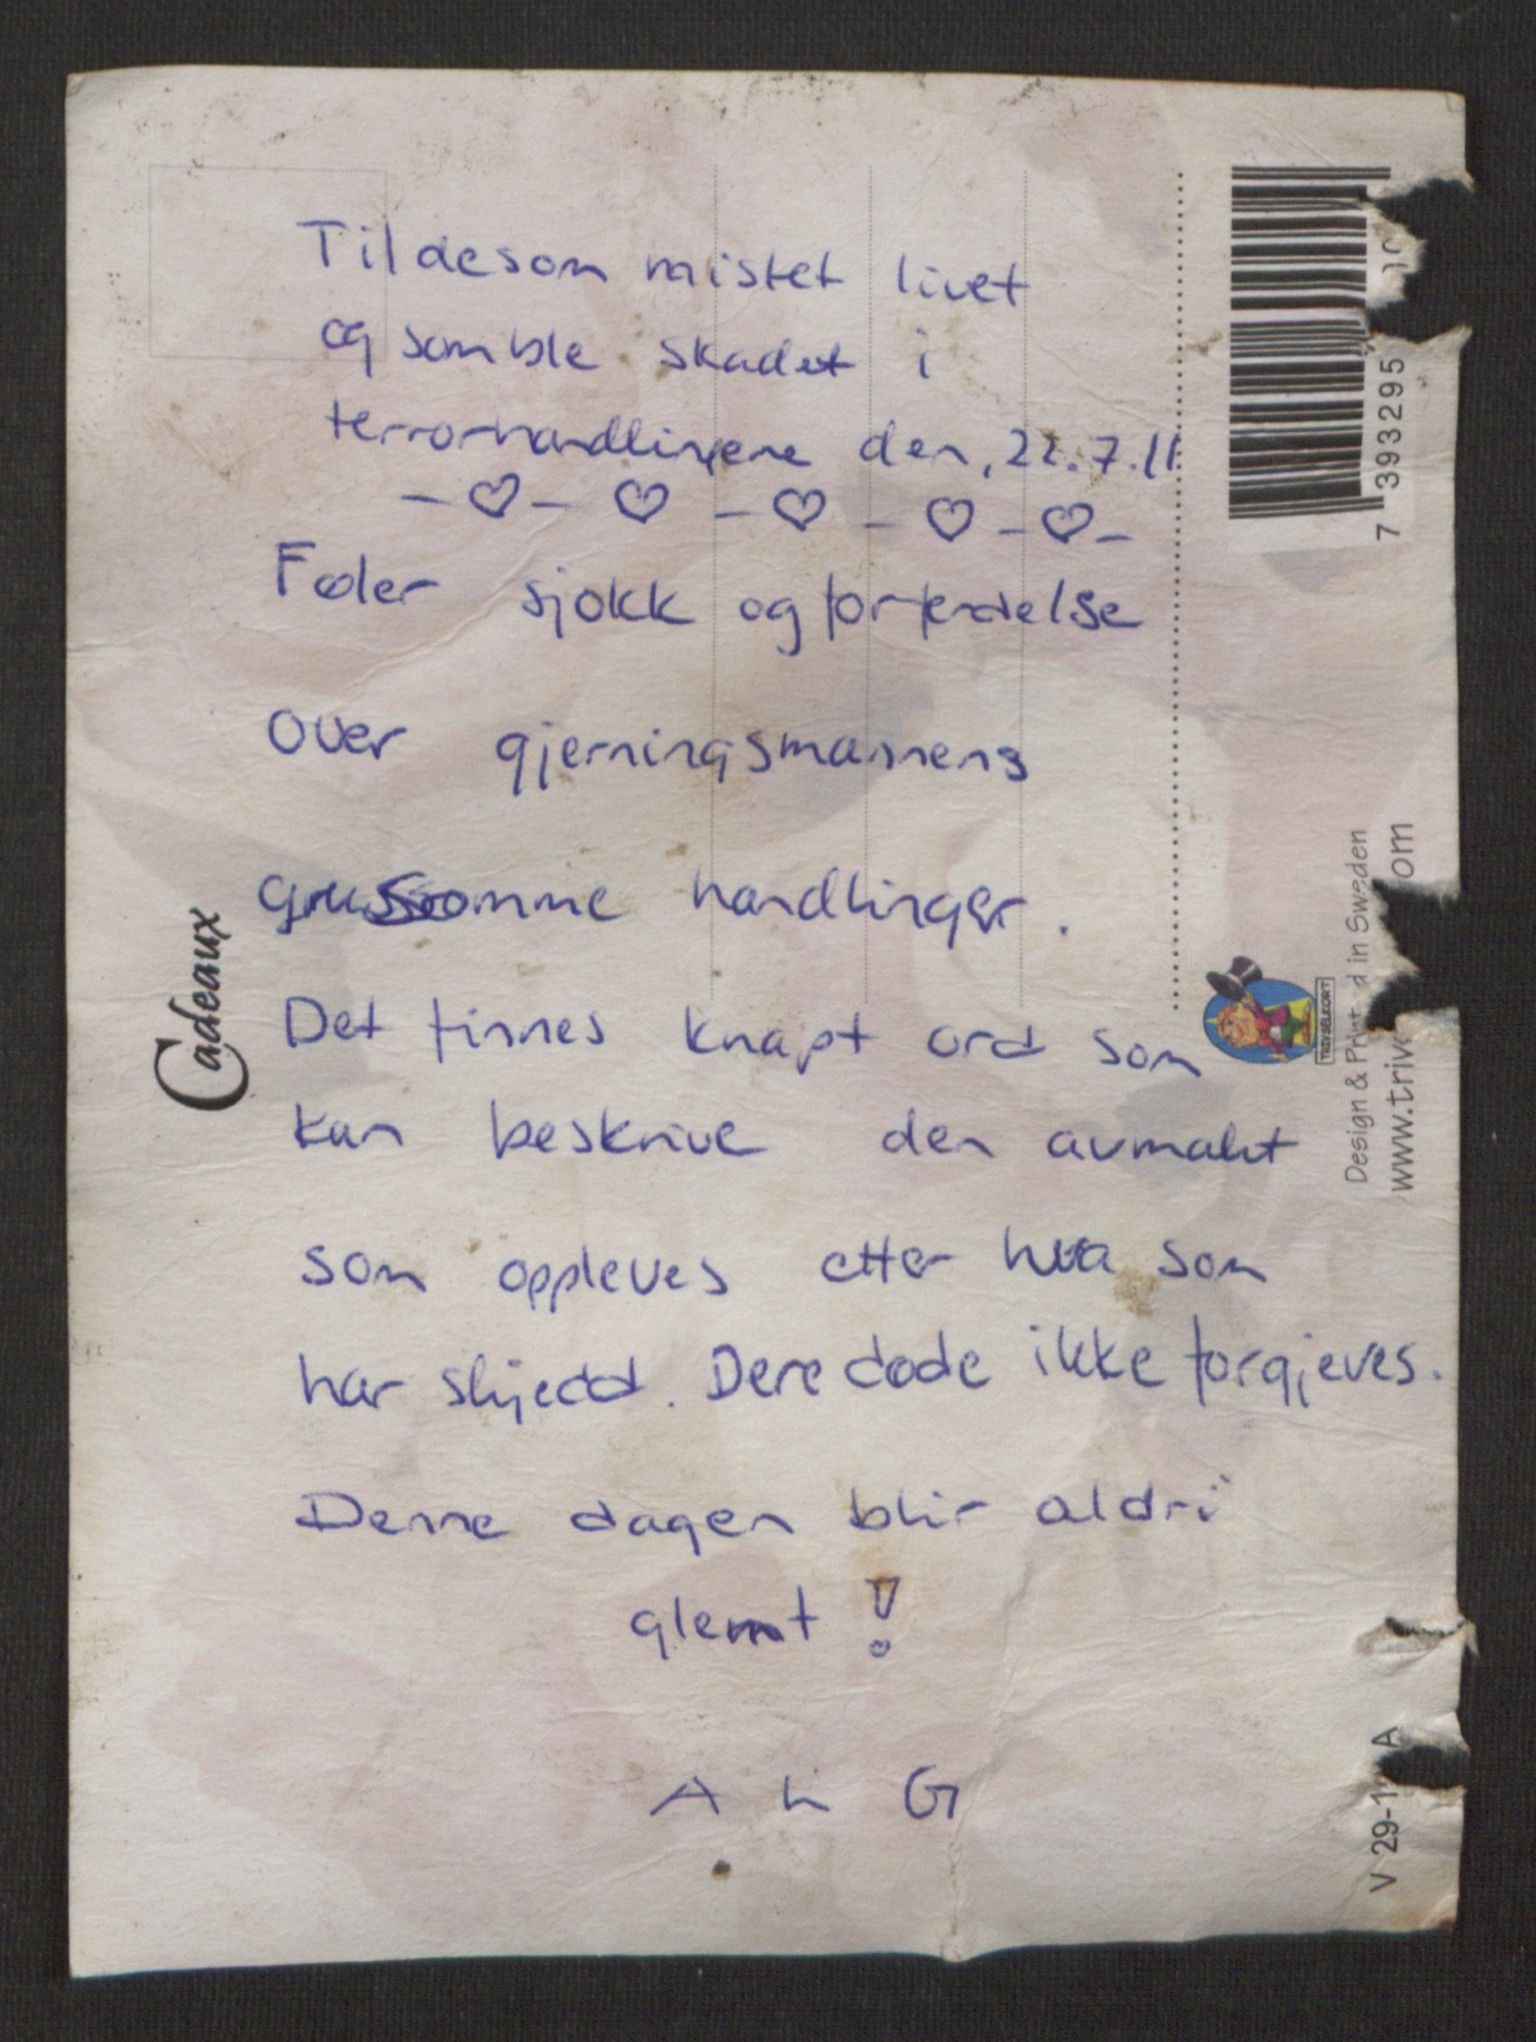 Til de som mistet livet
og som ble skadet i
terrorhandlingene den, 22.7.11
- ♡ - ♡ - ♡ - ♡ - ♡ -
Føler sjokk og forferdelse
over gjerningsmannens
grusomme handlinger.
Det finnes knapt ord som
kan beskrive den avmakt
som oppleves etter hva som
har skjedd. Dere døde ikke forgjeves.
Denne dagen blir aldri
glemt!
A L G
Cadeaux
7 393295
TRIVSELKORT
Design & Print d in Sweden
www.triv om
V 29-1 A